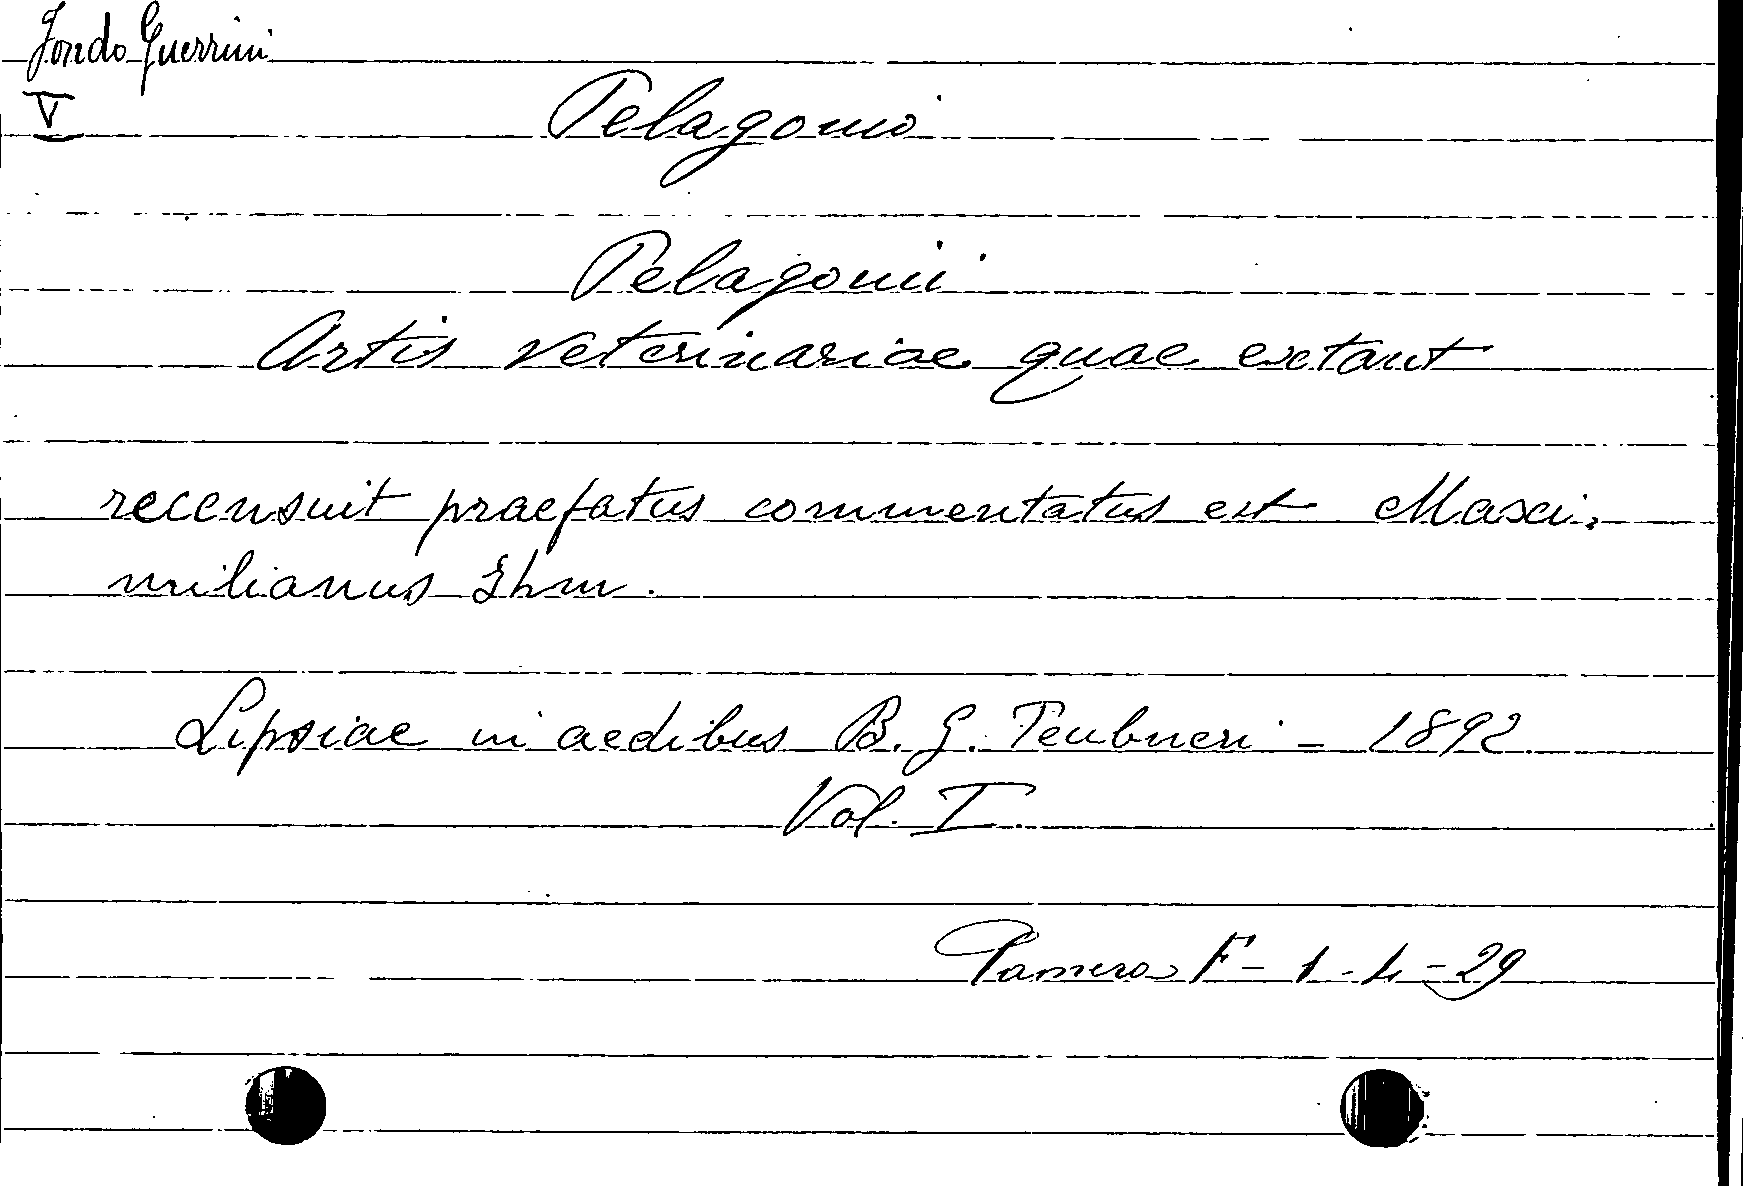 Fondo Guerrini
V
Pelagonio
Pelagonii
Artis veterinariae quae extant
recensuit praefatus commentatus est Maxi-
milianus Ihm.
Lipsiae in aedibus B. G. Teubneri - 1892
Vol. I.
F - 1 - 4 - 29